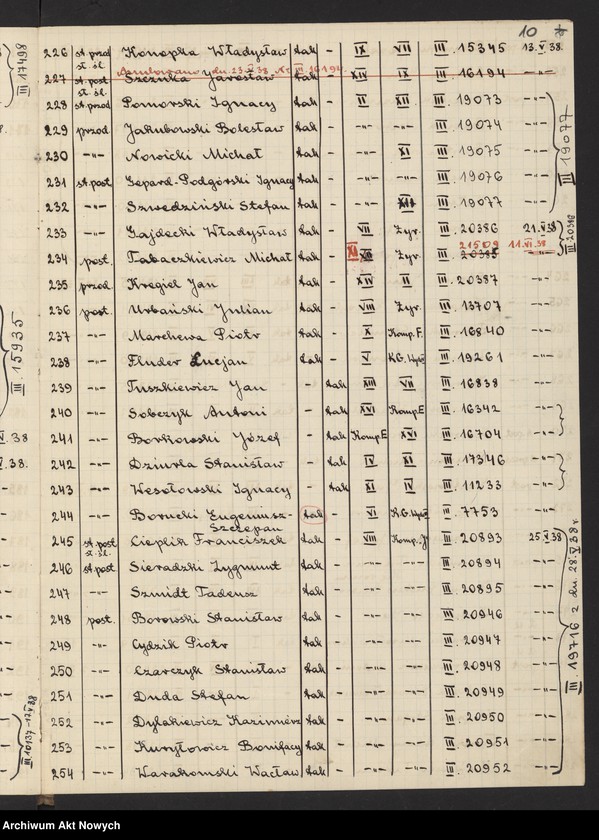 10
226 st. przod. st. śl. Konopka Władysław tak - IX VII III. 15345 13.V.38.
Anulowano dn. 23.V.38. Nr. III 16194.
227 st. post. st. śl. Szczuka Jarosław tak - XIV IX III. 16194 -"-
228 st. przod. Pomorski Ignacy tak - II XII III. 19073 -"-
229 przod. Jakubowski Bolesław tak - -"- -"- III. 19074 -"-
230 -"- Nowicki Michał tak - -"- XI III. 19075 -"-
231 st. post. Gepard-Podgórski Ignacy tak - -"- -"- III. 19076 -"-
232 -"- Szwedziński Stefan tak - -"- XII III. 19077 -"-
III 19077
233 -"- Gajdecki Władysław tak - VII Żyr. III. 20386 21.V.38
21509 11.VI.38
234 post. Tabaczkiewicz Michał tak - XI Żyr. III. 20385 -"-
235 przod. Kręgiel Jan tak - XIV II III. 20387 -"-
236 post. Urbański Julian tak - VIII Żyr. III. 13707 -"-
237 -"- Marchewa Piotr tak - X Komp. F. III. 16840 -"-
238 -"- Fluder Lucjan tak - V III. 19261 -"-
239 -"- Tuszkiewicz Jan - tak XIII VII III. 16838 -"-
240 -"- Sobczyk Antoni - tak XVI Komp. E III. 16342 -"-
241 -"- Borkowski Józef - tak Komp. E XVI III. 16704 -"-
242 -"- Dziurla Stanisław - tak IV XI III. 17346 -"-
243 -"- Wesołowski Ignacy - tak XI IV III. 11233 -"-
244 -"- Borucki Eugeniusz-
Szczepan tak - VI III. 7753 -"-
245 st. post. st. śl. Cieplik Franciszek tak - VIII Komp. J III. 20893 25.V.38
246 st. post. Sieradzki Zygmunt tak - -"- -"- III. 20894 -"-
247 -"- Szmidt Tadeusz tak - -"- -"- III. 20895 -"-
248 post. Borowski Stanisław tak - -"- -"- III. 20946 -"-
249 -"- Cydzik Piotr tak - -"- -"- III. 20947 -"-
250 -"- Czarczyk Stanisław tak - -"- -"- III. 20948 -"-
251 -"- Duda Stefan tak - -"- -"- III. 20949 -"-
252 -"- Dylakiewicz Kazimierz tak - -"- -"- III. 20950 -"-
253 -"- Kuryłowicz Bonifacy tak - -"- -"- III. 20951 -"-
254 -"- Warakomski Wacław tak - -"- -"- III. 20952 -"-
III. 19716 z dn. 28.V.38 r.
III 17498
III 15935
V.38
V.38.
Archiwum Akt Nowych